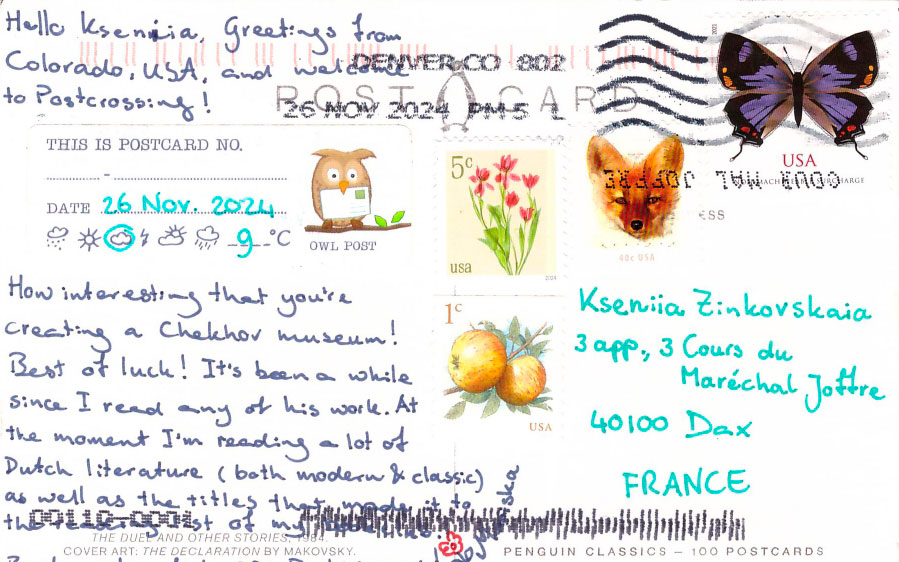 Hello Kseniia, Greetings from
Colorado, USA, and welcome
to Postcrossing!
POSTCARD
DENVER CO 802
26 NOV 2024 PM 5 L
THIS IS POSTCARD NO.
-
DATE 26 Nov. 2024
9 °C
OWL POST
How interesting that you're
creating a Chekhov museum!
Best of luck! It's been a while
since I read any of his work. At
the moment I'm reading a lot of
Dutch literature (both modern & classic)
as well as the titles that made it to
the list of my
5c
usa
1c
USA
40c USA
2021
USA
COUR MAL JOFFRE
€SS
Kseniia Zinkovskaia
3 app., 3 Cours du
Maréchal Joffre
40100 Dax
FRANCE
THE DUEL AND OTHER STORIES, 1984.
COVER ART: THE DECLARATION BY MAKOVSKY.
PENGUIN CLASSICS – 100 POSTCARDS